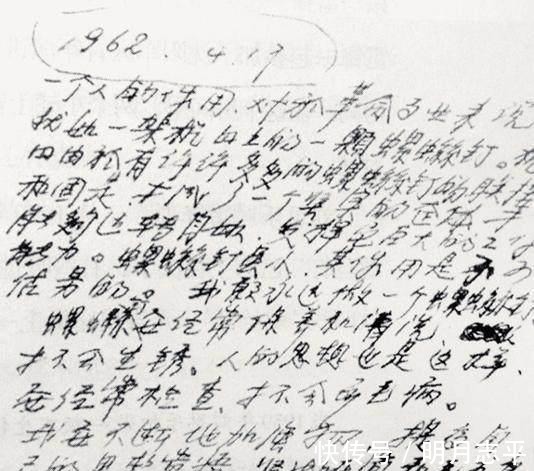 1962.4.7
一个人的作用，对于革命事业来说，
就如一架机器上的一颗螺丝钉。机
由于有许许多多的螺丝钉的联接
和固定，才成了一个坚实的整体，才
能够运转自如，发挥它巨大的工作
能力。螺丝钉虽小，其作用是不可
估量的。我愿永远做一个螺丝钉
螺丝钉要经常保养和清洗
才不会生锈。人的思想也是这样，
要经常检查，才不会出毛病。
我要不断地加强学习，提高自
己的思想觉悟，坚决
快传号/明月志平